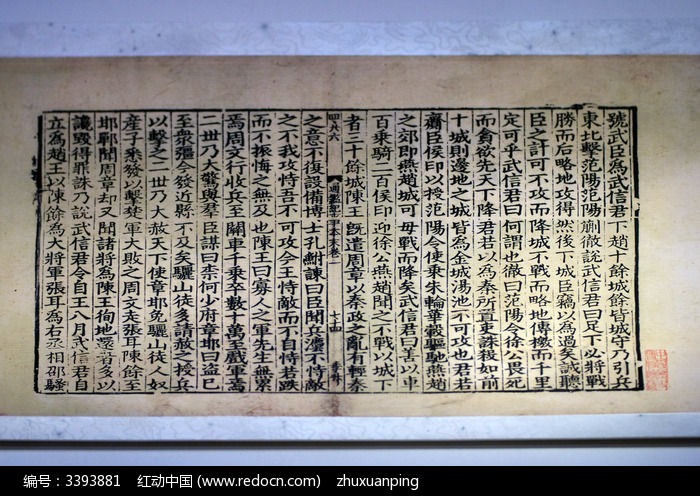 號武臣為武信君下趙十餘城餘皆城守乃引兵
東北擊范陽范陽蒯徹說武信君曰足下必將戰
勝而后略地攻得然後下城臣竊以為過矣誠聽
臣之計可不攻而降城不戰而略地傳檄而千里
定可乎武信君曰何謂也徹曰范陽令徐公畏死
而貪欲先天下降君若以為秦所置吏誅殺如前
十城則邊地之城皆為金城湯池不可攻也君若
齎臣侯印以授范陽令使乘朱輪華轂驅馳燕趙
之郊即燕趙城可毋戰而降矣武信君曰善以車
百乘騎二百侯印迎徐公燕趙聞之不戰以城下
者三十餘城陳王既遣周章以秦政之亂有輕秦
通鑑紀事本末卷一 十四
之意不復設備博士孔鮒諫曰臣聞兵灋不恃敵
之不我攻恃吾不可攻今王恃敵而不自恃若跌
而不振悔之無及也陳王曰寡人之軍先生無累
焉周文行收兵至關車千乘卒數十萬至戲軍焉
二世乃大驚與羣臣謀曰柰何少府章邯曰盜已
至衆彊今發近縣不及矣驪山徒多請赦之授兵
以擊之二世乃大赦天下使章邯免驪山徒人奴
產子悉發以擊楚軍大敗之周文走張耳陳餘至
邯鄲聞周章却又聞諸將為陳王徇地還者多以
讒毀得罪誅乃說武信君令自王八月武信君自
立為趙王以陳餘為大將軍張耳為右丞相邵騷
编号：3393881 红动中国 (www.redocn.com) zhuxuanping